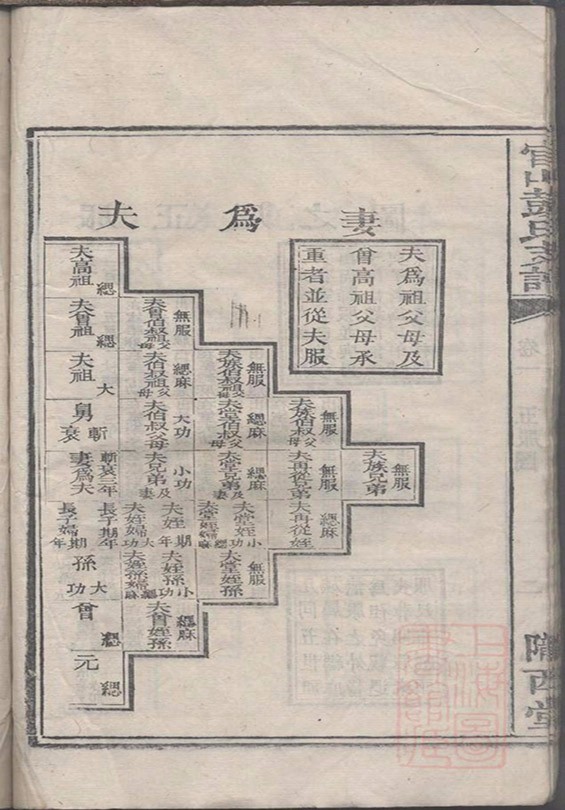 官山彭氏支譜
卷一
隴西堂
妻為夫
夫為祖父母及
曾高祖父母承
重者並從夫服
夫族兄弟
無服
夫族伯叔父母
無服
夫再從兄弟
無服
夫再從姪
緦麻
夫族伯叔祖父母
無服
夫堂伯叔父母
緦麻
夫堂兄弟及妻
緦
夫堂姪小功
夫堂姪婦緦
夫堂姪孫
無服
夫曾伯叔祖父母
無服
夫伯叔祖父母
緦麻
夫伯叔父母
大功
夫兄弟及妻
小功
夫姪期年
夫姪婦大功
夫姪孫小功
夫姪孫婦緦麻
夫曾姪孫
緦麻
夫高祖
緦
夫曾祖
緦
夫祖
大
舅
斬衰
妻為夫
斬衰三年
長子期年
長子婦期年
孫
大功
曾
緦
元
緦